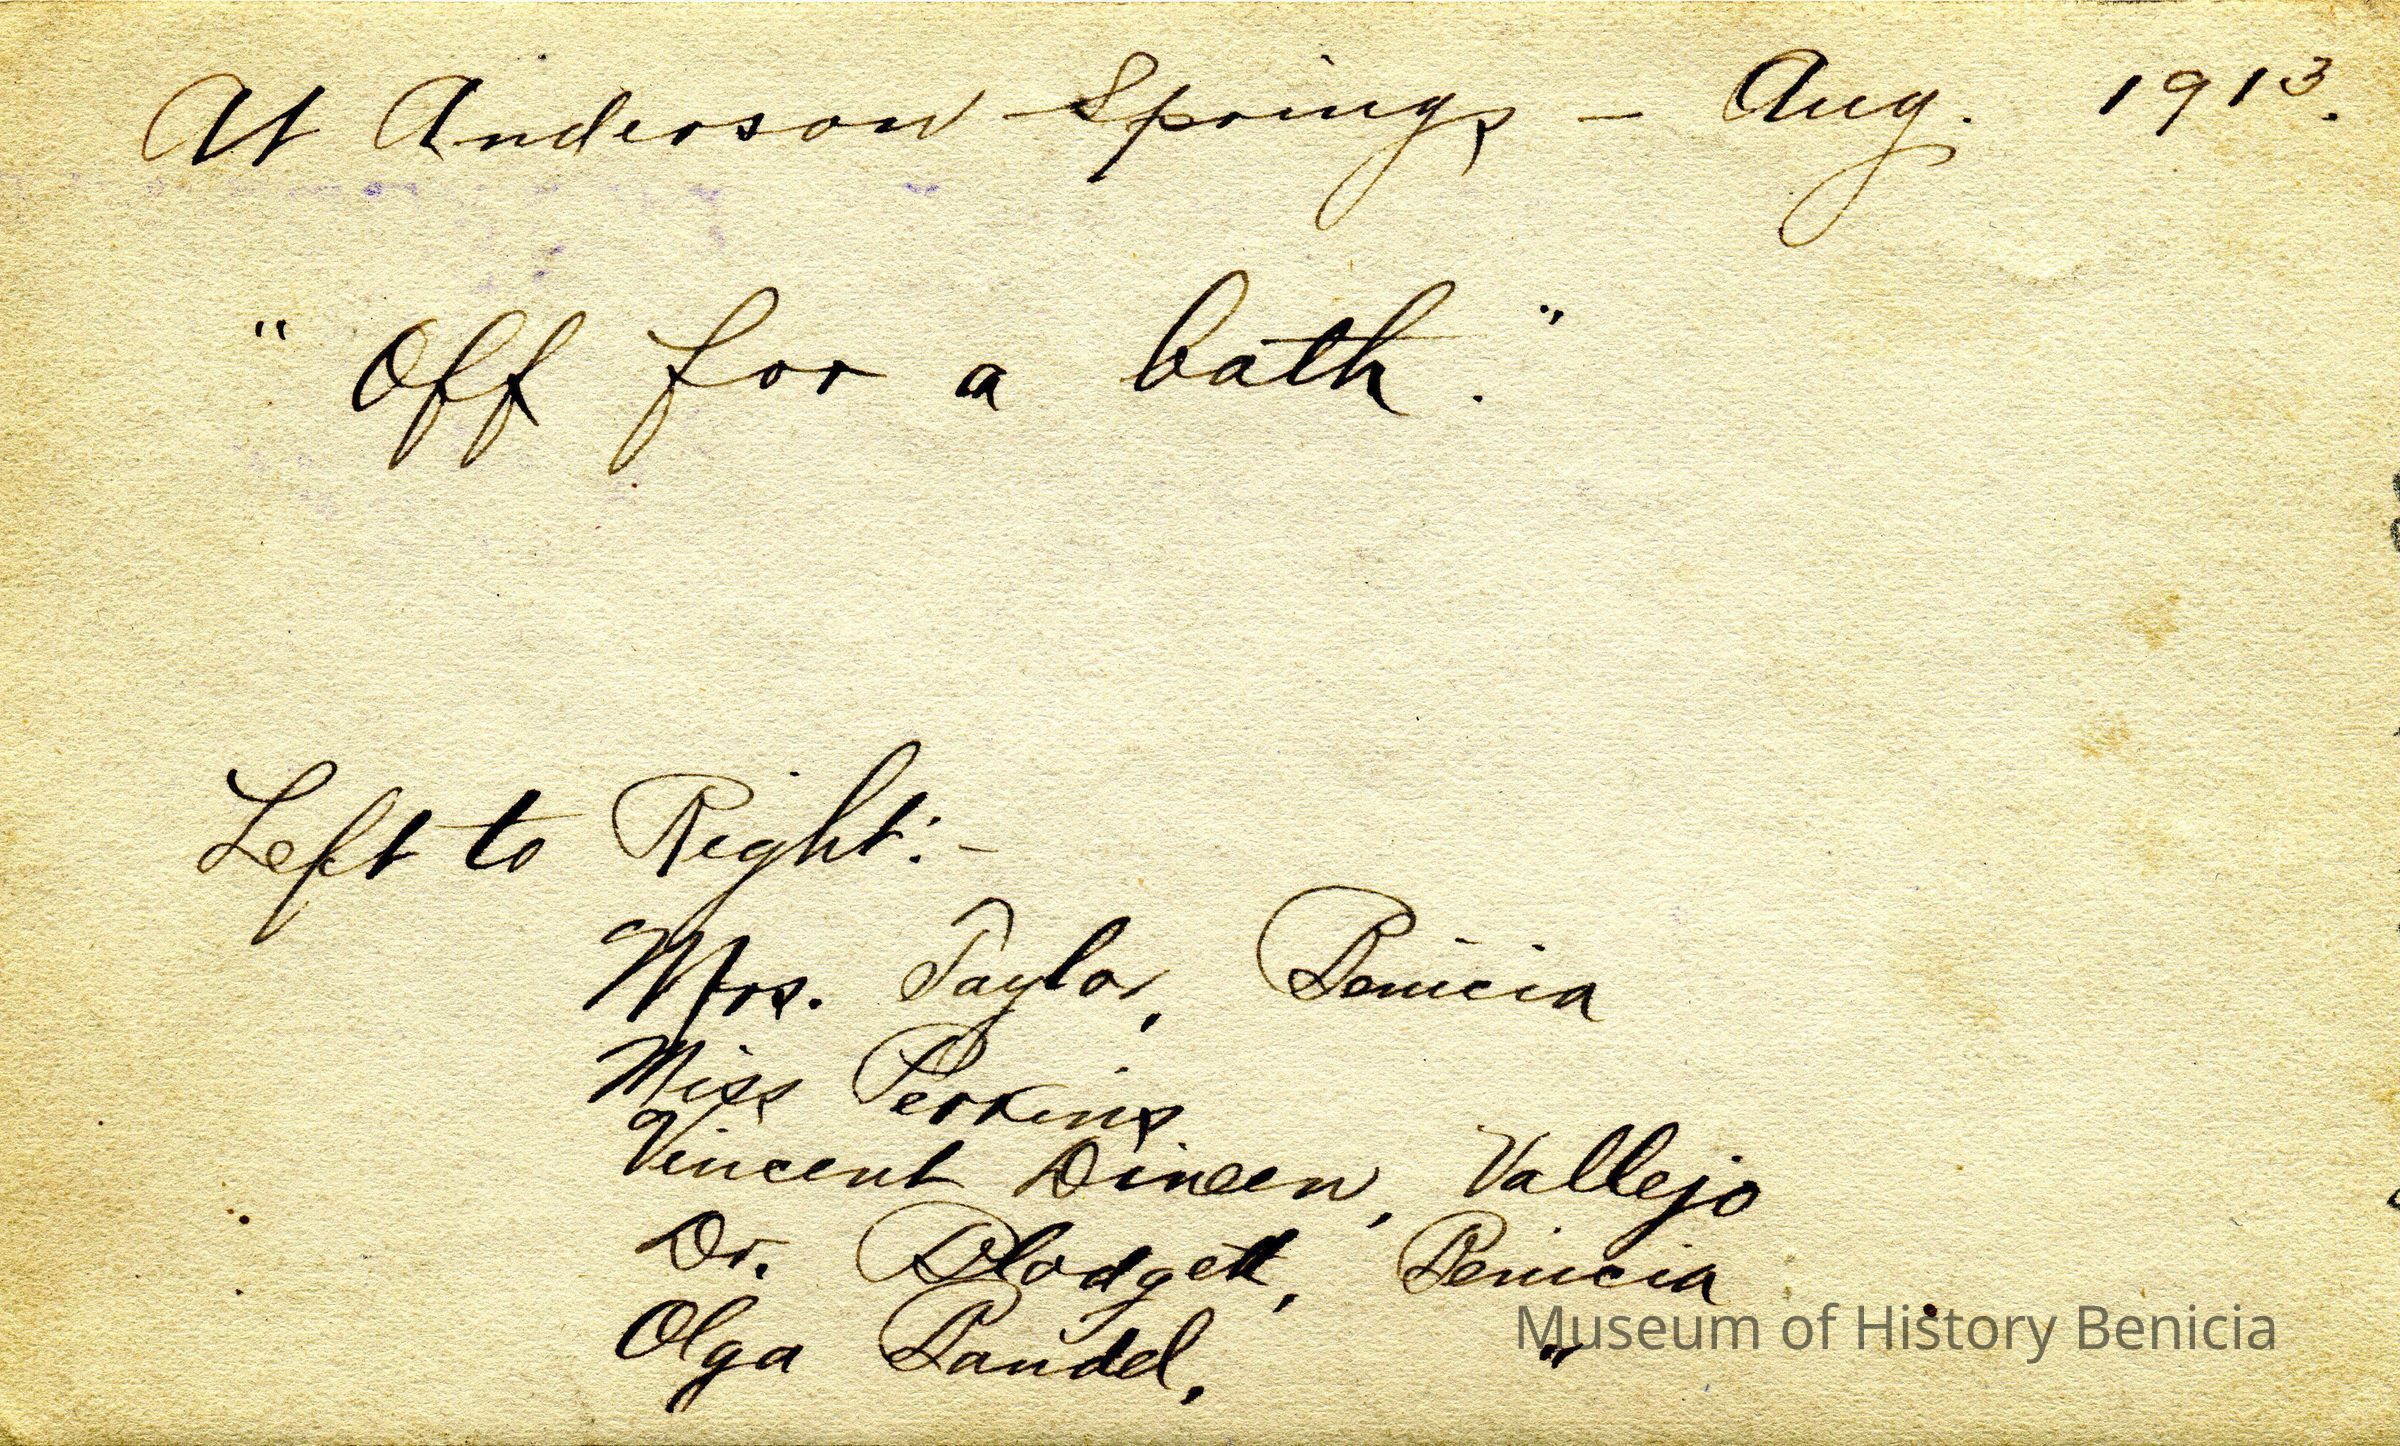 At Anderson Springs - Aug. 1913.
"Off for a bath."
Left to Right:-
Mrs. Taylor, Benicia
Miss Perkins
Vincent Dineen, Vallejo
Dr. Blodgett, Benicia
Olga Bandel, "
Museum of History Benicia